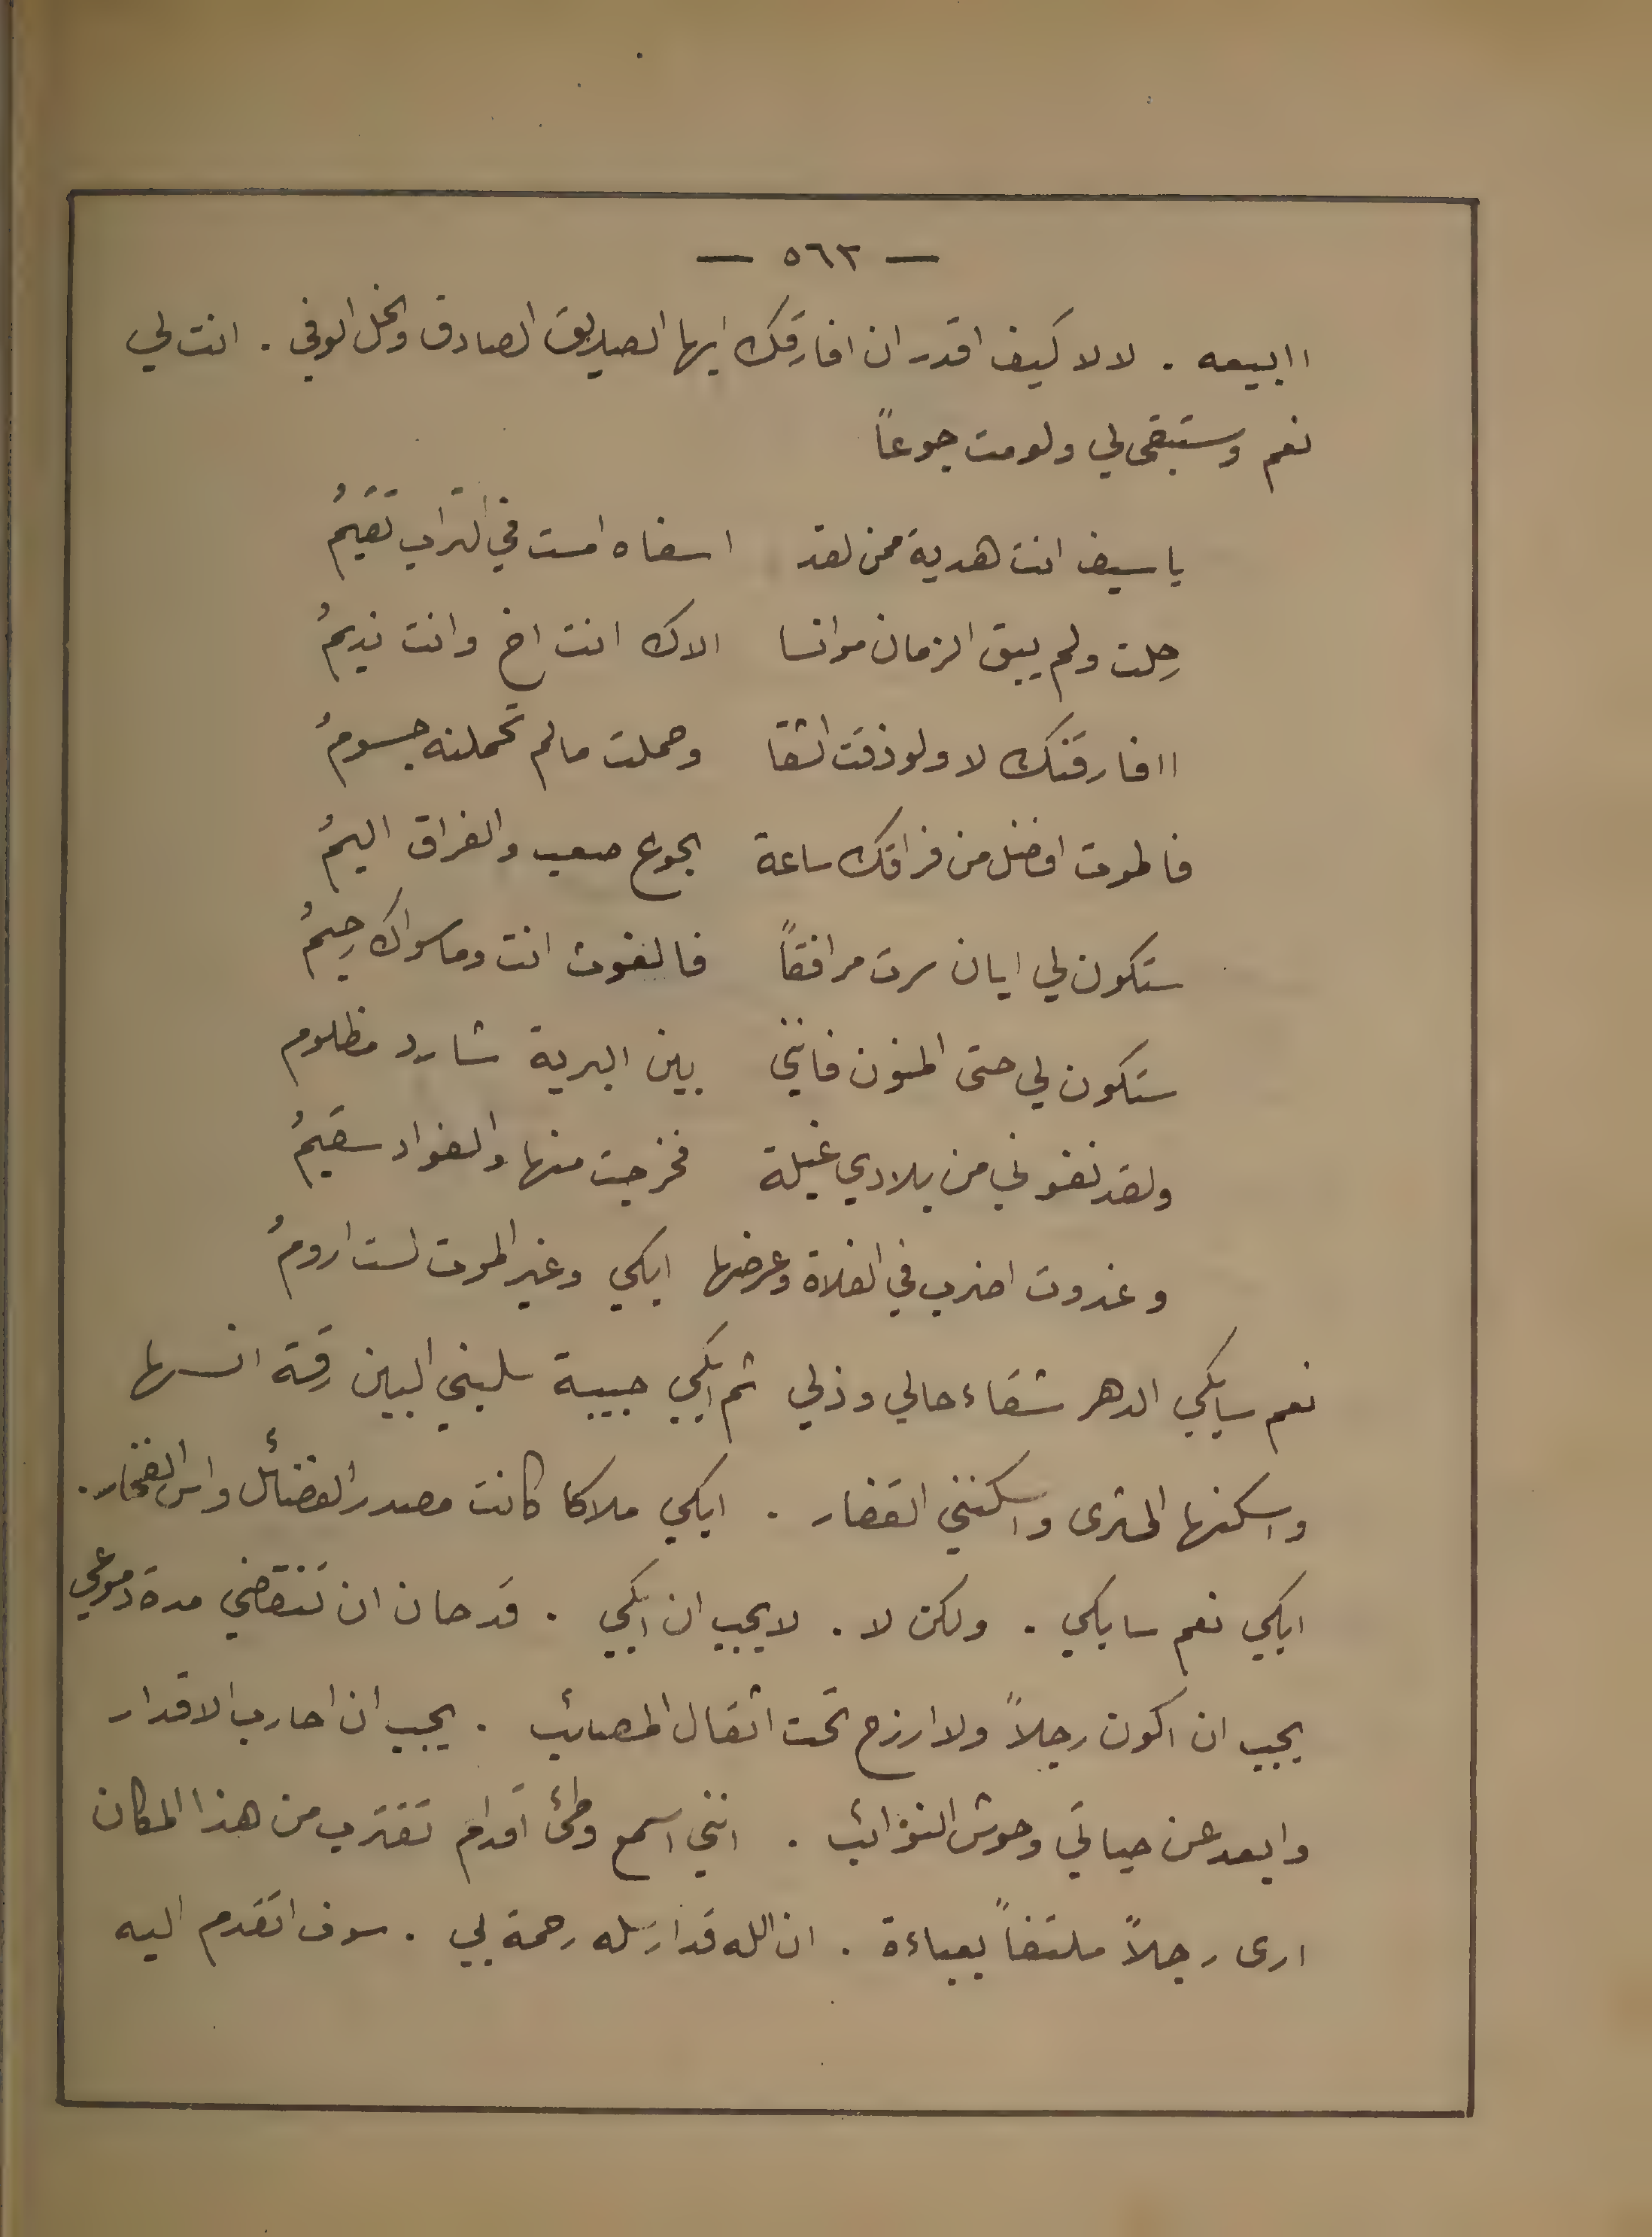 — ٥٦٣ —
اابيعه . لا لا كيف اقدر ان افارقك ايها الصديق الصادق والخل الوفي . انت لي
نعم وستبقى لي ولو مت جوعاً
يا سيف انت هدية ممن لقد اسفاه امست في التراب تقيمُ
رحلت ولم يبق الزمان موانسا الاك انت اخ وانت نديمُ
اافارقنك لا ولو ذقت الشقا وحملت مالم تحملنه جسومُ
فالموت افضل من فراقك ساعة الجوع صعب والفراق اليمُ
ستكون لي ايان سرت مرافقاً فالغوث انت وما سواك رحيمُ
ستكون لي حتى المنون فانني بين البرية شارد مظلوم
ولقد نفوني من بلادي غيلة فخرجت منها والفواد سقيمُ
وغدوت اضرب في الفلاة وعرضها ابكي وغير الموت لست ارومُ
نعم سابكي الدهر شقاء حالي وذلي ثم ابكي حبيبة سلبني البين رقة انسها
واسكنها الثرى واسكنني القفار . ابكي ملاكا كانت مصدر الفضائل واس الفخار .
ابكي نعم سابكي . ولكن لا . لا يجب ان ابكي . قد حان ان تنقضي مدة دموعي
يجب ان اكون رجلاً ولا ارزح تحت اثقال المصائب . يجب ان احارب الاقدار
وابعد عن حياتي وحوش النوائب . انني اسمع وطئ اقدام تقترب من هذا المكان
ارى رجلاً ملتفاً بعباءة . ان الله قد ارسله رحمة بي . سوف اتقدم اليه